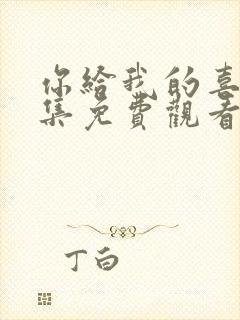 你給我的喜
集免費觀看
丁白